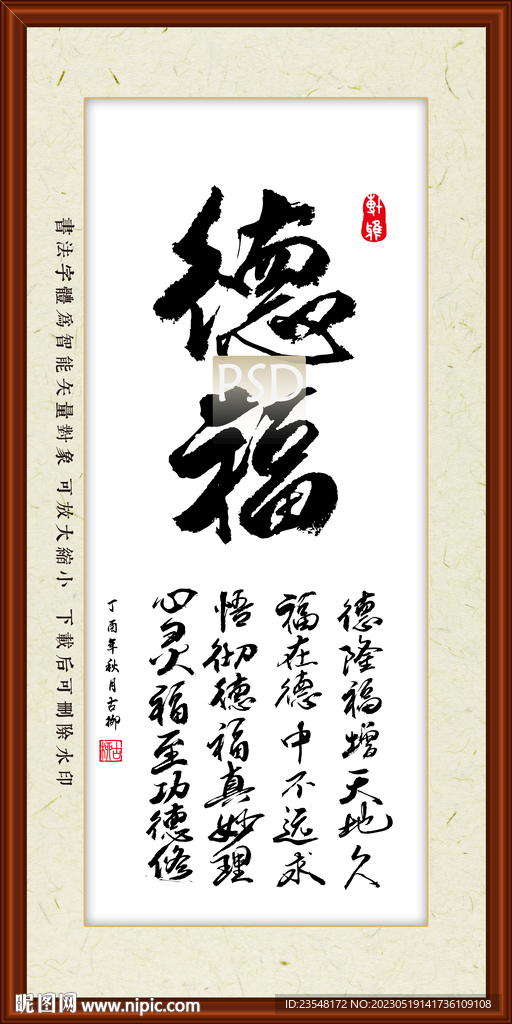 德福
軒雅
德隆福增天地久
福在德中不远求
悟彻德福真妙理
心灵福至功德修
丁酉年秋月古柳
書法字體為智能矢量對象 可放大縮小 下載后可删除水印
PSD
昵图网 www.nipic.com
ID:23548172 NO:20230519141736109108